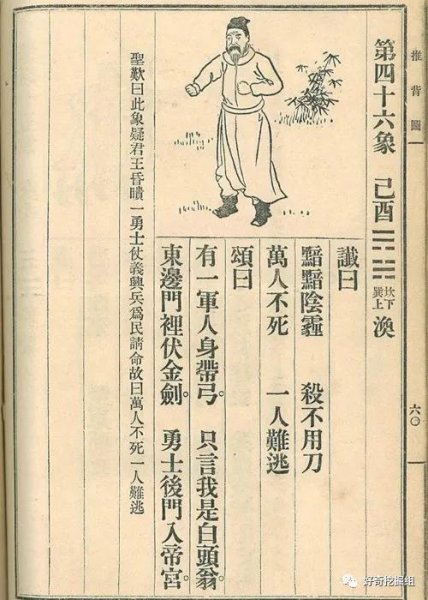 推背圖
六〇
第四十六象 己酉 坎下 巽上 渙
讖曰
黯黯陰霾 殺不用刀
萬人不死 一人難逃
頌曰
有一軍人身帶弓。 只言我是白頭翁。
東邊門裡伏金劍。 勇士後門入帝宮。
聖歎曰此象疑君王昏瞶一勇士仗義興兵爲民請命故曰萬人不死一人難逃
好奇挖掘组